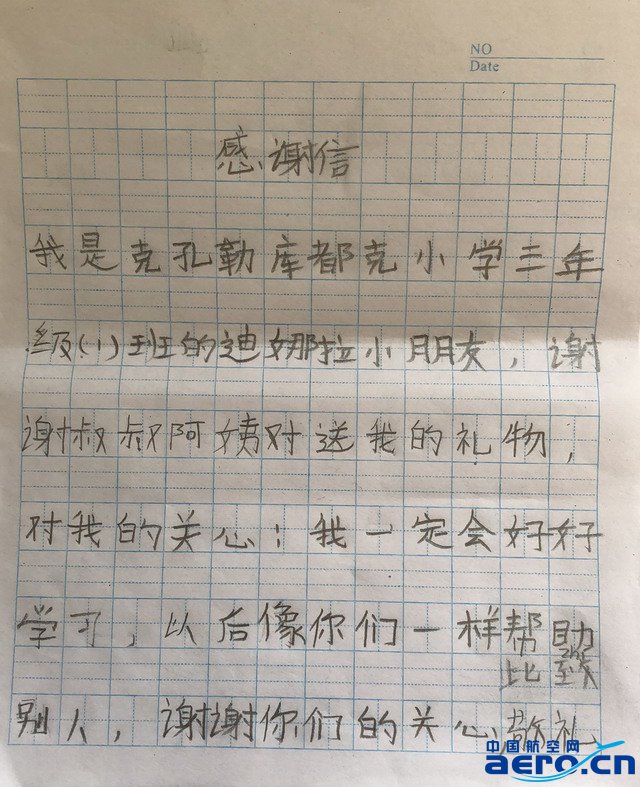 NO
Date
感谢信
我是克孔勒库都克小学三年
级(1)班的迪娜拉小朋友，谢
谢叔叔阿姨对送我的礼物，
对我的关心！我一定会好好
学习，以后像你们一样帮助
此致
别人，谢谢你们的关心 敬礼
中国航空网
aero.cn